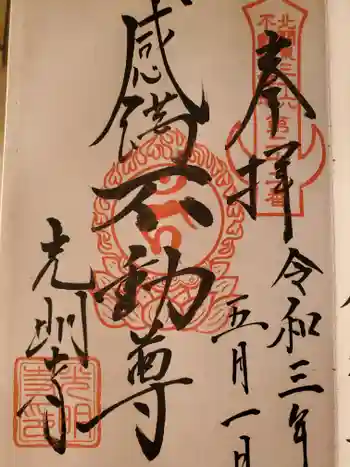 奉拝
令和三年
五月一日
感満不動尊
光明寺